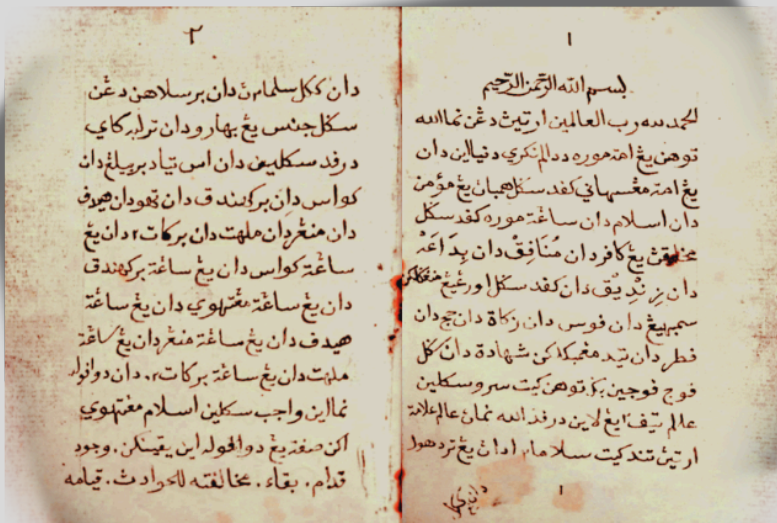 ١
بسم الله الرحمن الرحيم
الحمد لله رب العالمين ارتيڽ دڠن نما الله
توهن يڠ امة موره ددالم نكري دنيا اين دان
يڠ امة مڠسهاني كفد سكل همبان يڠ مؤمن
دان اسلام دان ساڠة موره كفد سكل
يڠ كافر دان مُنَافِقْ دان بِدَاعَةْ
دان زِنْدِيْق دان كفد سكل اورڠ يڠ
سمبهيڠ دان فوس دان زكاة دان حج دان
فطر دان تيد مڠبكاكن شهادة دان كل
فوج فوجين بكي توهن كيت سرو سكلين
عالم تيف ايڠ لاين درفد الله نمان عالم علامة
ارتين تند كيت دان يڠ تردهول
١
٢
دان ككل سلمان دان برسلاهن دڠن
سكل جنس يڠ بهارو دان تربركاي
درفد سكلين دان اس تياد بربيلڠ دان
كواس دان بركهندق دان تهو دان هيدف
دان منڠر دان مليهت دان بركات٢ دان يڠ
ساڠة كواس دان يڠ ساڠة بركهندق
دان يڠ ساڠة مڠتهوي دان يڠ ساڠة
هيدف دان يڠ ساڠة منڠر دان يڠ ساڠة
مليهت دان يڠ ساڠة بركات٢. دان دوافوله
نما اين واجب سكلين اسلام مڠتهوي
اكن صفة يڠ دوافوله اين يقينكن. وجود
قدام. بقاء. مخالفته للحوادث. قيامه